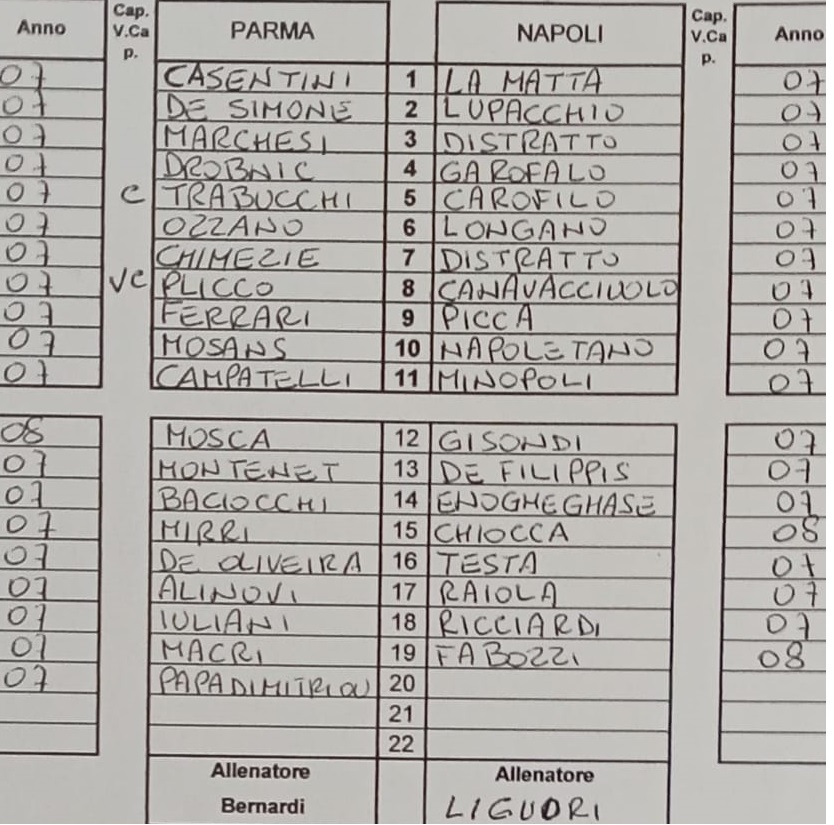 Anno Cap. V.Ca p. PARMA NAPOLI Cap. V.Ca p. Anno
07 CASENTINI 1 LA MATTA 07
07 DE SIMONE 2 LUPACCHIO 07
07 MARCHESI 3 DISTRATTO 07
07 DROBNIC 4 GAROFALO 07
07 C TRABUCCHI 5 CAROFILO 07
07 OZZANO 6 LONGANO 07
07 CHIMEZIE 7 DISTRATTO 07
07 VC PLICCO 8 CANAVACCIUOLO 07
07 FERRARI 9 PICCA 07
07 MOSANS 10 NAPOLETANO 07
07 CAMPATELLI 11 MINOPOLI 07
08 MOSCA 12 GISONDI 07
07 MONTENET 13 DE FILIPPIS 07
07 BACIOCCHI 14 ENOGHEGHASE 07
07 MIRRI 15 CHIOCCA 08
07 DE OLIVEIRA 16 TESTA 07
07 ALINOVI 17 RAIOLA 07
07 IULIANI 18 RICCIARDI 07
07 MACRI 19 FABOZZI 08
07 PAPADIMITRIOU 20
21
22
Allenatore Allenatore
Bernardi LIGUORI